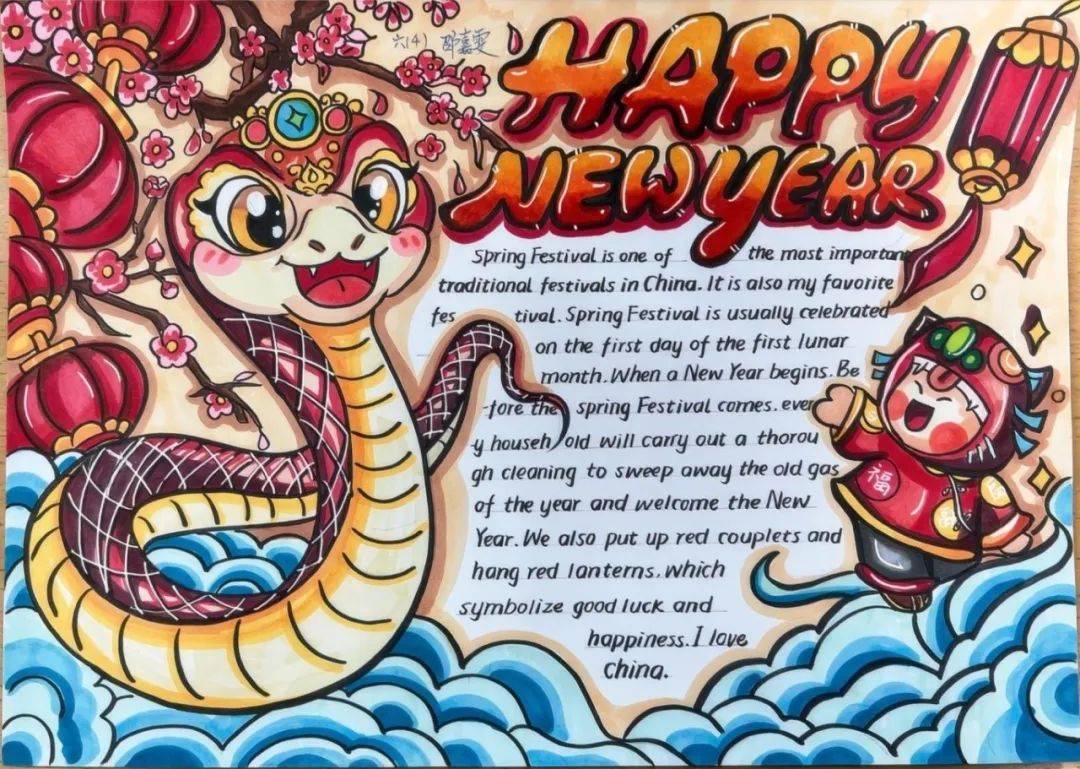 六(4) 嘉雯
HAPPY
NEW YEAR
Spring Festival is one of the most important
traditional festivals in China. It is also my favorite
fes tival. Spring Festival is usually celebrated
on the first day of the first lunar
month. When a New Year begins. Be
-fore the spring Festival comes. ever
-y househ old will carry out a thorou
gh cleaning to sweep away the old gas
of the year and welcome the New
Year. We also put up red couplets and
hang red lanterns. which
symbolize good luck and
happiness. I love
China.
福